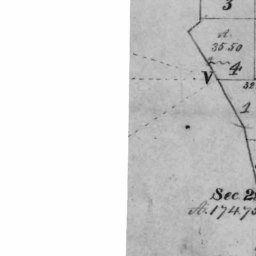 3
A.
35.50
V 4
32
1
Sec. 2
A. 174.75